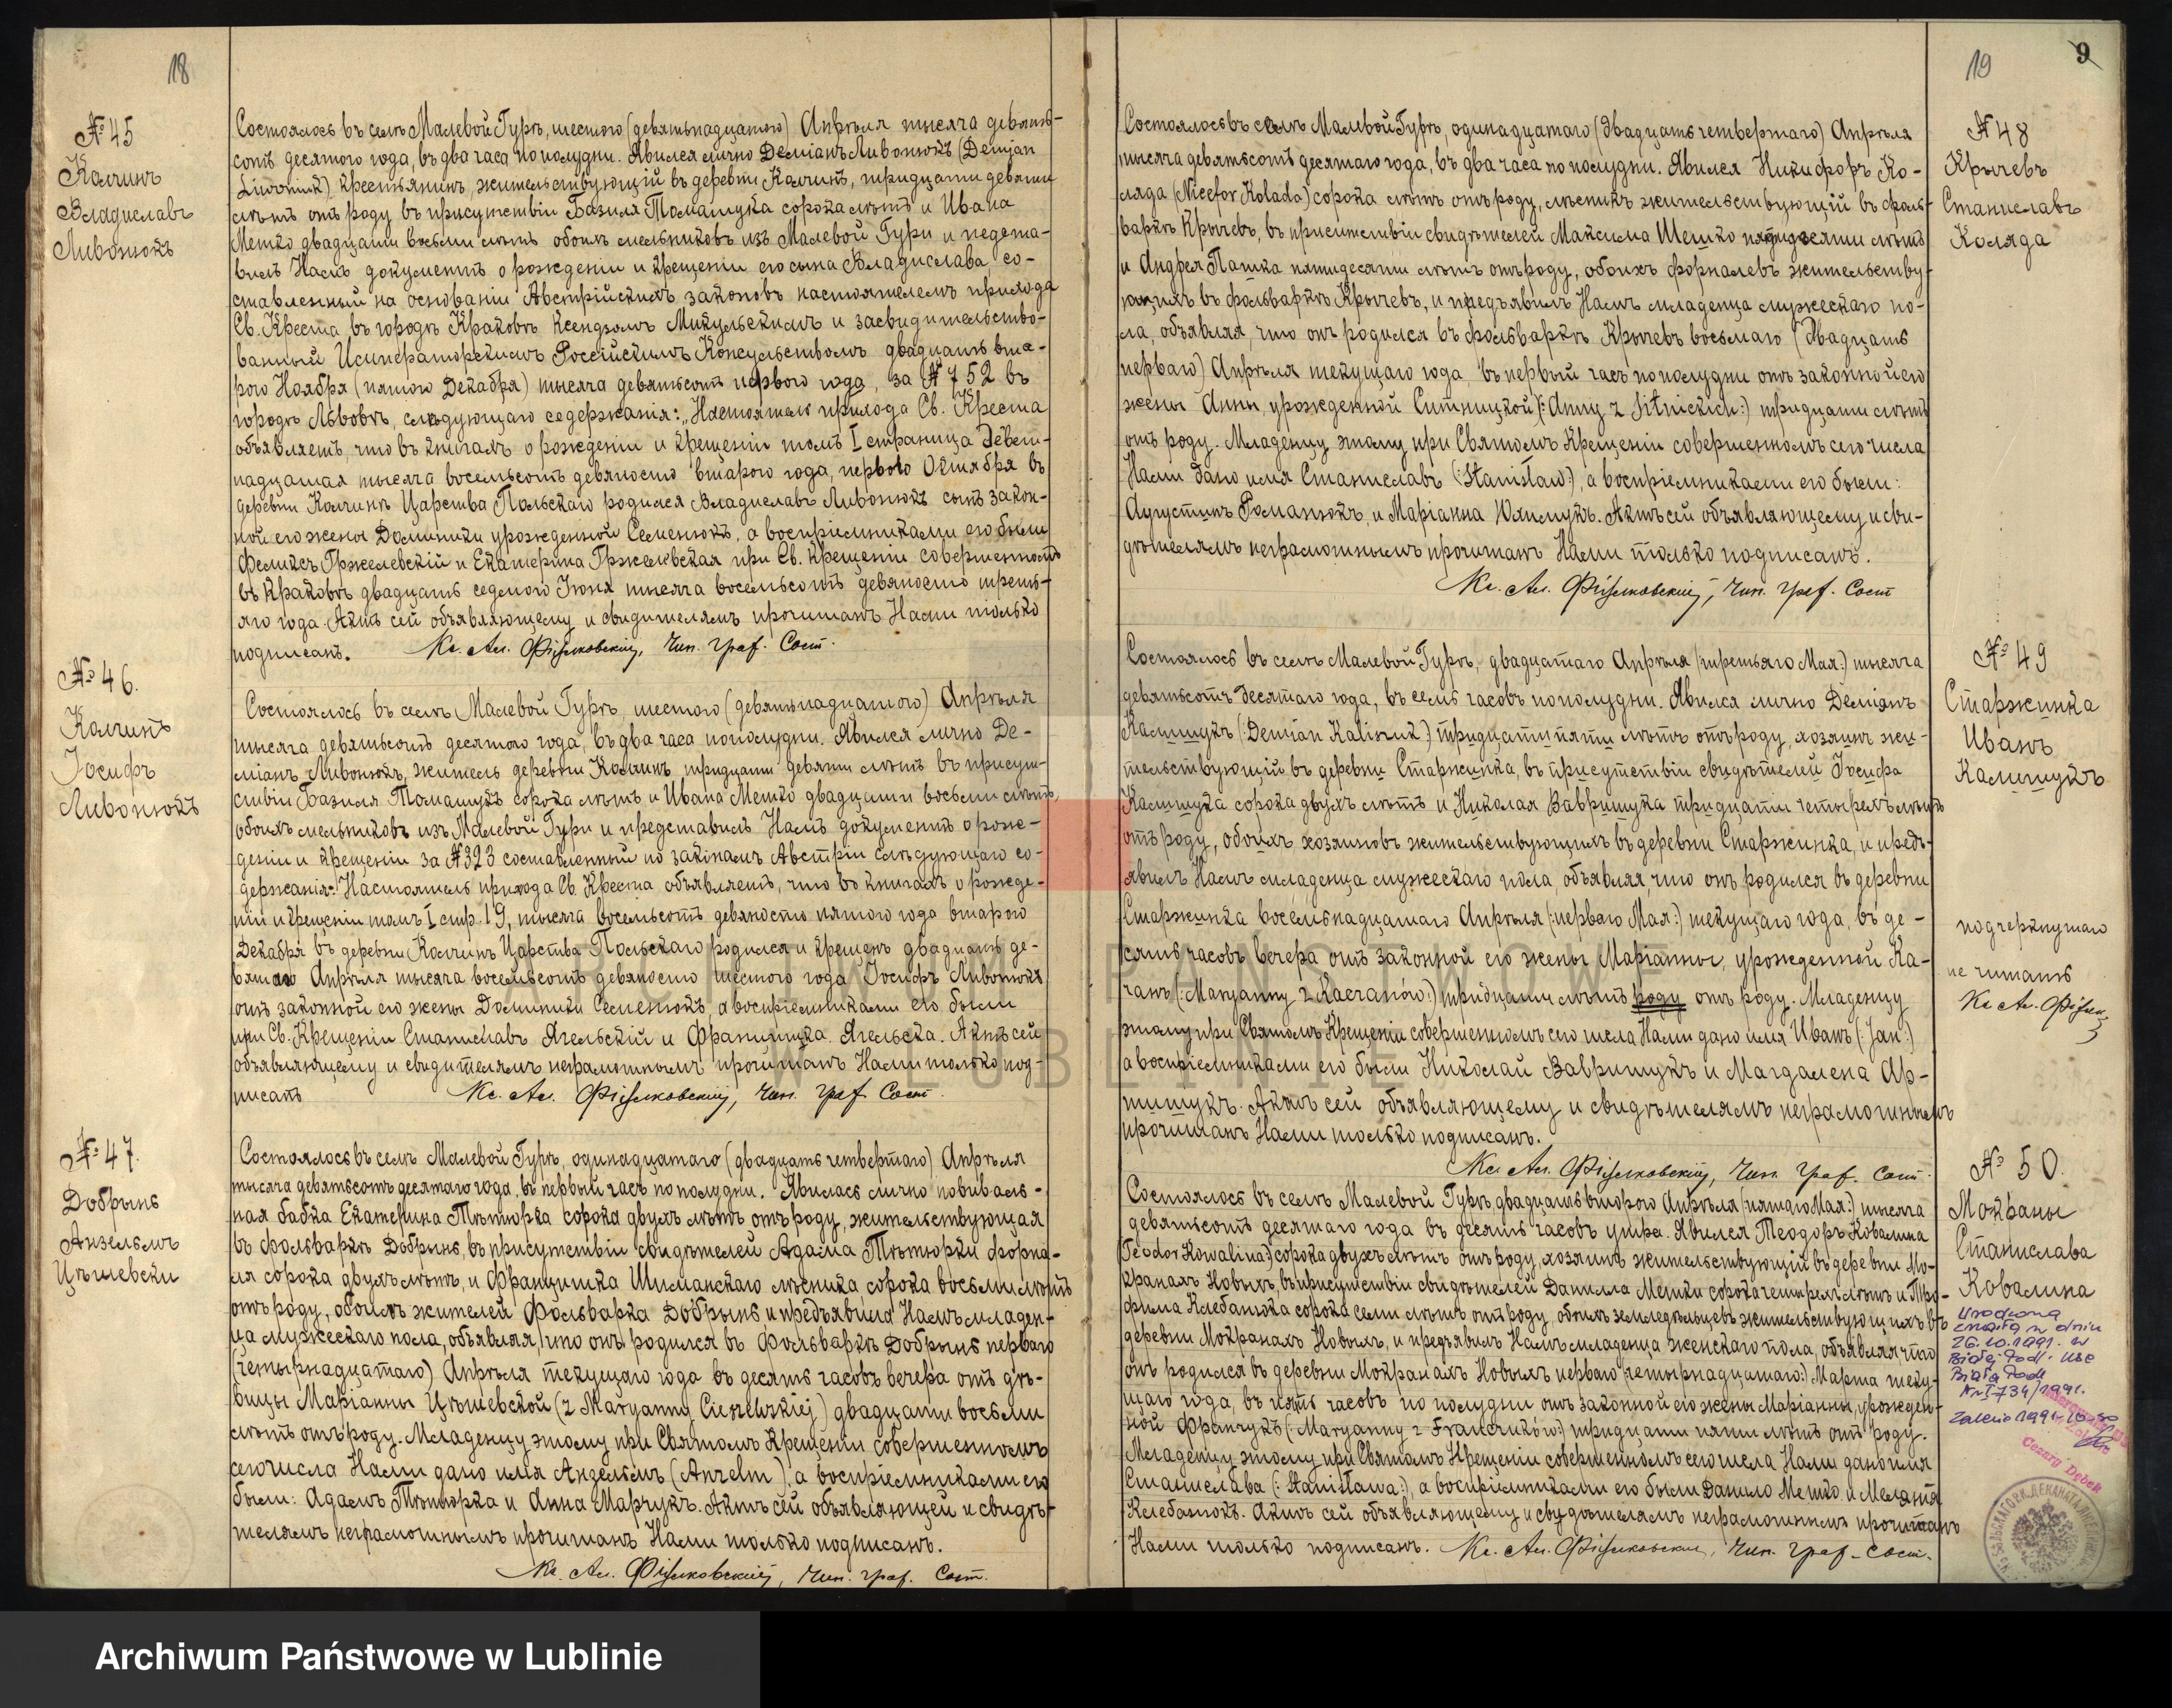 18
№ 45
Калчинъ
Владиславъ
Ливонюкъ
Состоялось въ селѣ Малевой Гурѣ, шестого (девятнадцатого) Апрѣля тысяча девять-
сотъ десятого года, въ два часа по полудни. Явился лично Деміанъ Ливонюкъ (Demjan
Liwoniuk) крестьянинъ, жительствующій въ деревни Калчинѣ, тридцати девяти
лѣтъ отъ роду въ присутствіи Базиля Томашука сорока лѣтъ и Ивана
Мешко двадцати восьми лѣтъ обоихъ мельниковъ изъ Малевой Гури и
Намъ документъ о рожденіи и крещеніи его сына Владислава, со-
ставленный на основаніи Австрійскихъ законовъ настоятелемъ прихода
Св. Креста въ городѣ Краковѣ Ксендзомъ Микульскимъ и засвидительство-
ванный Императорскимъ Россійскимъ Консульствомъ двадцать вто-
рого Ноября (пятого Декабря) тысяча девятьсотъ первого года, за № 752 въ
городѣ Львовѣ, слѣдующаго содержанія: „Настоятель прихода Св. Креста
объявляетъ, что въ книгахъ о рожденіи и крещеніи томъ I страница девят-
надцатая тысяча восемьсотъ девяносто второго года, первого Октября въ
деревни Калчинѣ Царства Польскаго родился Владиславъ Ливонюкъ сынъ закон-
ной его жены Доминики урожденной Семенюкъ, а воспріемниками его были
Феликсъ Гржелевскій и Екатерина Гржелевская при Св. Крещеніи совершенномъ
въ Краковѣ двадцать седмого Іюня тысяча восемьсотъ девяносто треть-
яго года. Актъ сей объявляющему и свидителямъ прочитанъ Нами только
подписанъ. Кс. Ал. Фіјалковскій, Чин. граф. Сост.
№ 46.
Калчинъ
Іосифъ
Ливонюкъ
Состоялось въ селѣ Малевой Гурѣ, шестого (девятнадцатого) Апрѣля
тысяча девятьсотъ десятого года, въ два часа пополудни. Явился лично Де-
міанъ Ливонюкъ, житель деревни Калчинъ, тридцати девяти лѣтъ въ присут-
ствіи Базиля Томашукъ сорока лѣтъ и Ивана Мешко двадцати восьми лѣтъ,
обоихъ мельниковъ изъ Малевой Гури и представилъ Намъ документъ о рож-
деніи и крещеніи за № 323 составленный по законамъ Австріи слѣдующаго со-
держанія: Настоятель прихода Св. Креста объявляетъ, что въ книгахъ о рожде-
ніи и крещеніи томъ I стр. 19, тысяча восемьсотъ девяносто пятого года второго
Декабря въ деревни Калчинъ Царства Польскаго родился и крещенъ двадцать де-
вятаго Апрѣля тысяча восемьсотъ девяносто шестого года Іосифъ Ливонюкъ
отъ законной его жены Доминики Семенюкъ, а воспріемниками его были
при Св. Крещеніи Станиславъ Ягельскій и Францишка Ягельска. Актъ сей
объявляющему и свидителямъ неграмотнымъ прочитанъ Нами только под-
писанъ Кс. Ал. Фіјалковскій, Чин. граф. Сост.
№ 47.
Добрынь
Анзельмъ
Цѣшевски
Состоялось въ селѣ Малевой Гурѣ, одинадцатаго (двадцать четвертаго) Апрѣля
тысяча девятьсотъ десятаго года, въ первый часъ по полудни. Явилась лично повиваль-
ная бабка Екатерина Тѣтюрка сорока двухъ лѣтъ отъ роду, жительствующая
въ фольваркѣ Добрынь, въ присутствіи свидѣтелей Адама Тѣтюрки форна-
ля сорока двухъ лѣтъ, и Францишка Шиманскаго лѣсника сорока восьми лѣтъ
отъ роду, обоихъ жителей Фольварка Добрынь и предъявила Намъ младен-
ца мужескаго пола, объявляя, что онъ родился въ Фольваркѣ Добрынь перваго
(четырнадцатаго) Апрѣля текущаго года въ десять часовъ вечера отъ дѣ-
вицы Маріанны Цѣшевской (z Maryanny Cieszewskiej) двадцати восьми
лѣтъ отъ роду. Младенцу этому при Святомъ Крещеніи совершенномъ
сего числа Нами дано имя Анзельмъ (Anzelm), а воспріемниками его
были: Адамъ Тѣтюрка и Анна Марчукъ. Актъ сей объявляющей и свидѣ-
телямъ неграмотнымъ прочитанъ Нами только подписанъ.
Кс. Ал. Фіјалковскій, Чин. граф. Сост.
19
9
№ 48
Крычевъ
Станиславъ
Коляда
Состоялось въ селѣ Малевой Гурѣ, одинадцатаго (двадцать четвертаго) Апрѣля
тысяча девятьсотъ десятаго года, въ два часа по полудни. Явился Никифоръ Ко-
ляда (Nicefor Kolada) сорока лѣтъ отъ роду, лѣсникъ жительствующій въ фоль-
варкѣ Крычевъ, въ присутствіи свидѣтелей Максима Мешко пятидесяти лѣтъ
и Андрея Пашка пятидесяти лѣтъ отъ роду, обоихъ форналевъ жительству-
ющихъ въ фольваркѣ Крычевъ, и предъявилъ Намъ младенца мужескаго по-
ла, объявляя, что онъ родился въ фольваркѣ Крычевъ восьмаго (двадцать
перваго) Апрѣля текущаго года, въ первый часъ по полудни отъ законной его
жены Анны, урожденной Ситницкой (: Anny z Sitnickich:) тридцати лѣтъ
отъ роду. Младенцу этому при Святомъ Крещеніи совершенномъ сего числа
Нами дано имя Станиславъ (:Stanisław:), а воспріемниками его были:
Аугустинъ Романюкъ, и Маріанна Юхимукъ. Актъ сей объявляющему и сви-
дѣтелямъ неграмотнымъ прочитанъ Нами только подписанъ.
Кс. Ал. Фіјалковскій, Чин. граф. Сост
№ 49
Старжинка
Иванъ
Калишукъ
Состоялось въ селѣ Малевой Гурѣ, двадцатаго Апрѣля (:третьяго Мая:) тысяча
девятьсотъ десятаго года, въ семь часовъ пополудни. Явился лично Деміянъ
Калишукъ (:Demian Kaliszuk:) тридцати пяти лѣтъ отъ роду, хозяинъ жи-
тельствующій въ деревни Старжинка, въ присутствіи свидѣтелей Іосифа
Калишука сорока двухъ лѣтъ и Николая Вавришука тридцати четырехъ лѣтъ
отъ роду, обоихъ хозяиновъ жительствующихъ въ деревни Старжинка, и предъ-
явилъ Намъ младенца мужескаго пола, объявляя, что онъ родился въ деревни
Старжинка восемьнадцатаго Апрѣля (:перваго Мая:) текущаго года, въ де-
сять часовъ вечера отъ законной его жены Маріанны, урожденной Ка-
чанъ (:Maryanny z Kaczanów:) тридцати лѣтъ роду отъ роду. Младенцу
этому при Святомъ Крещеніи совершенномъ сего числа Нами дано имя Иванъ (:Jan:)
а воспріемниками его были Николай Вавришукъ и Магдалена Ар-
тишукъ. Актъ сей объявляющему и свидѣтелямъ неграмотнымъ
прочитанъ Нами только подписанъ.
Кс. Ал. Фіјалковскій, Чин. граф. Сост.
подчеркнутаго
не читать
Кс Ал. Фіјалк
№ 50.
Мокраны
Станислава
Ковалина
Состоялось въ селѣ Малевой Гурѣ, двадцать второго Апрѣля (пятаго Мая:) тысяча
девятьсотъ десятаго года въ десять часовъ утра. Явился Теодоръ Ковалина
(Teodor Kowalina:) сорока двухъ лѣтъ отъ роду, хозяинъ жительствующій въ деревни Мо-
кранахъ Новыхъ, въ присутствіи свидѣтелей Данила Мешки сорока четырехъ лѣтъ и Тро-
фима Клебанюка сорока семи лѣтъ отъ роду, обоихъ земледѣльцевъ жительствующихъ въ
деревни Мокранахъ Новыхъ, и предъявилъ Намъ младенца женскаго пола, объявляя что
онъ родился въ деревни Мокранахъ Новыхъ перваго (четырнадцатаго:) Марта теку-
щаго года, въ пять часовъ по полудни отъ законной его жены Маріанны, урожден-
ной Франчукъ (:Maryanny z Franczuków:) тридцати пяти лѣтъ отъ роду.
Младенцу этому при Святомъ Крещеніи совершенномъ сего числа Нами дано имя
Станислава (:Stanisława:), а воспріемниками его были Данило Мешко и Меланія
Клебанюкъ. Актъ сей объявляющему и свидѣтелямъ неграмотнымъ прочитанъ
Нами только подписанъ. Кс. Ал. Фіјалковскій, Чин. граф. Сост.
Urodzona
zmarła w dniu
26.10.1991. w
Białej Podl. USC
Biała Podl
Nr I 734/1991.
Cezary Dębek
ARCHIWUM PAŃSTWOWE
W LUBLINIE
Archiwum Państwowe w Lublinie